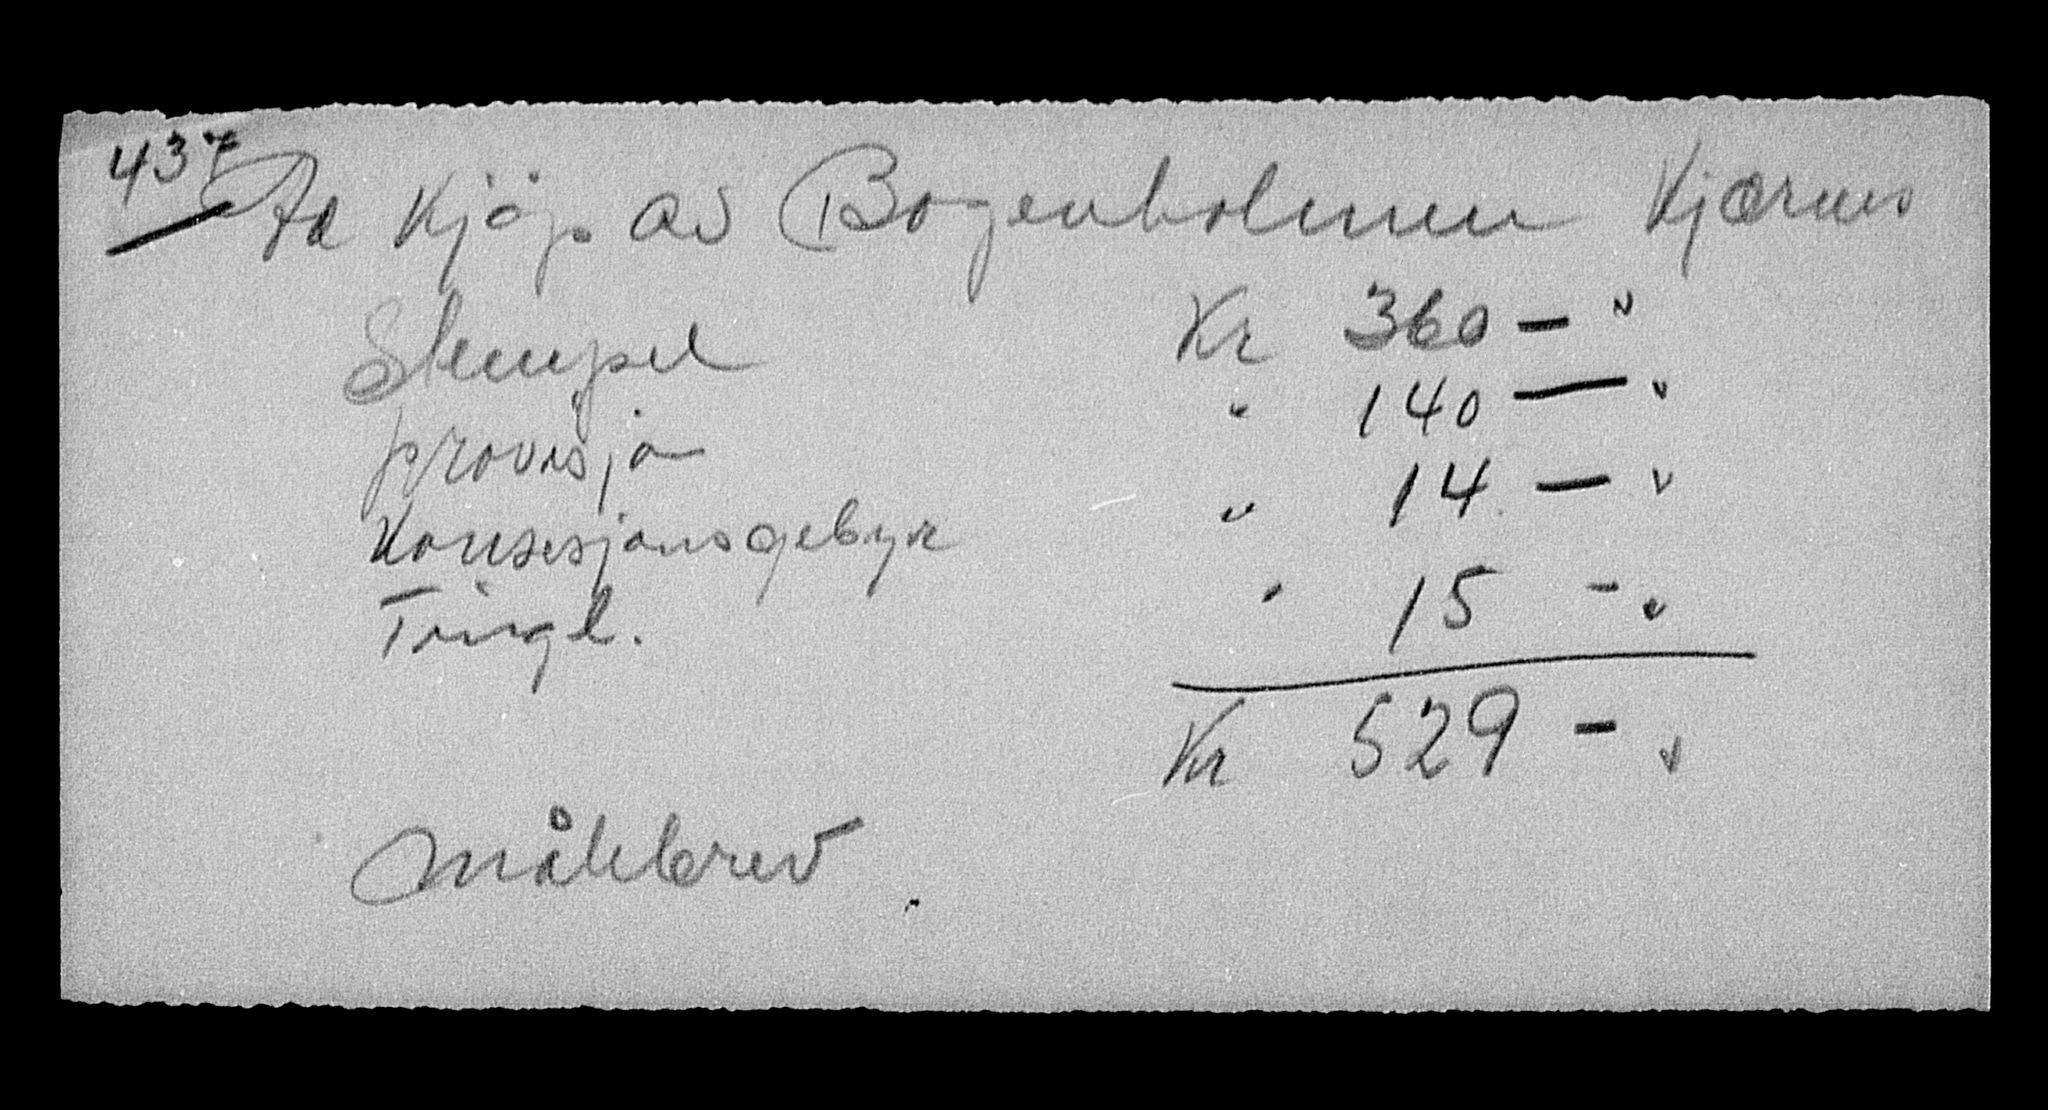 437
kjöp av Bogenholmen Kjærnes
Stempel Kr 360 — "
provisjon " 140 — "
Konsesjonsgebyr " 14 — "
Tingl. " 15 - "
Kr 529 - "
målebrev.